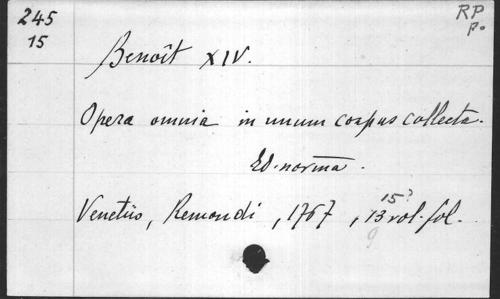 245
15
RP
p.
Benoît XIV.
Opera omnia in unum corpus collecta.
Ed. norma.
Venetiis, Remondi, 1767, 13 vol. fol.
15?
9